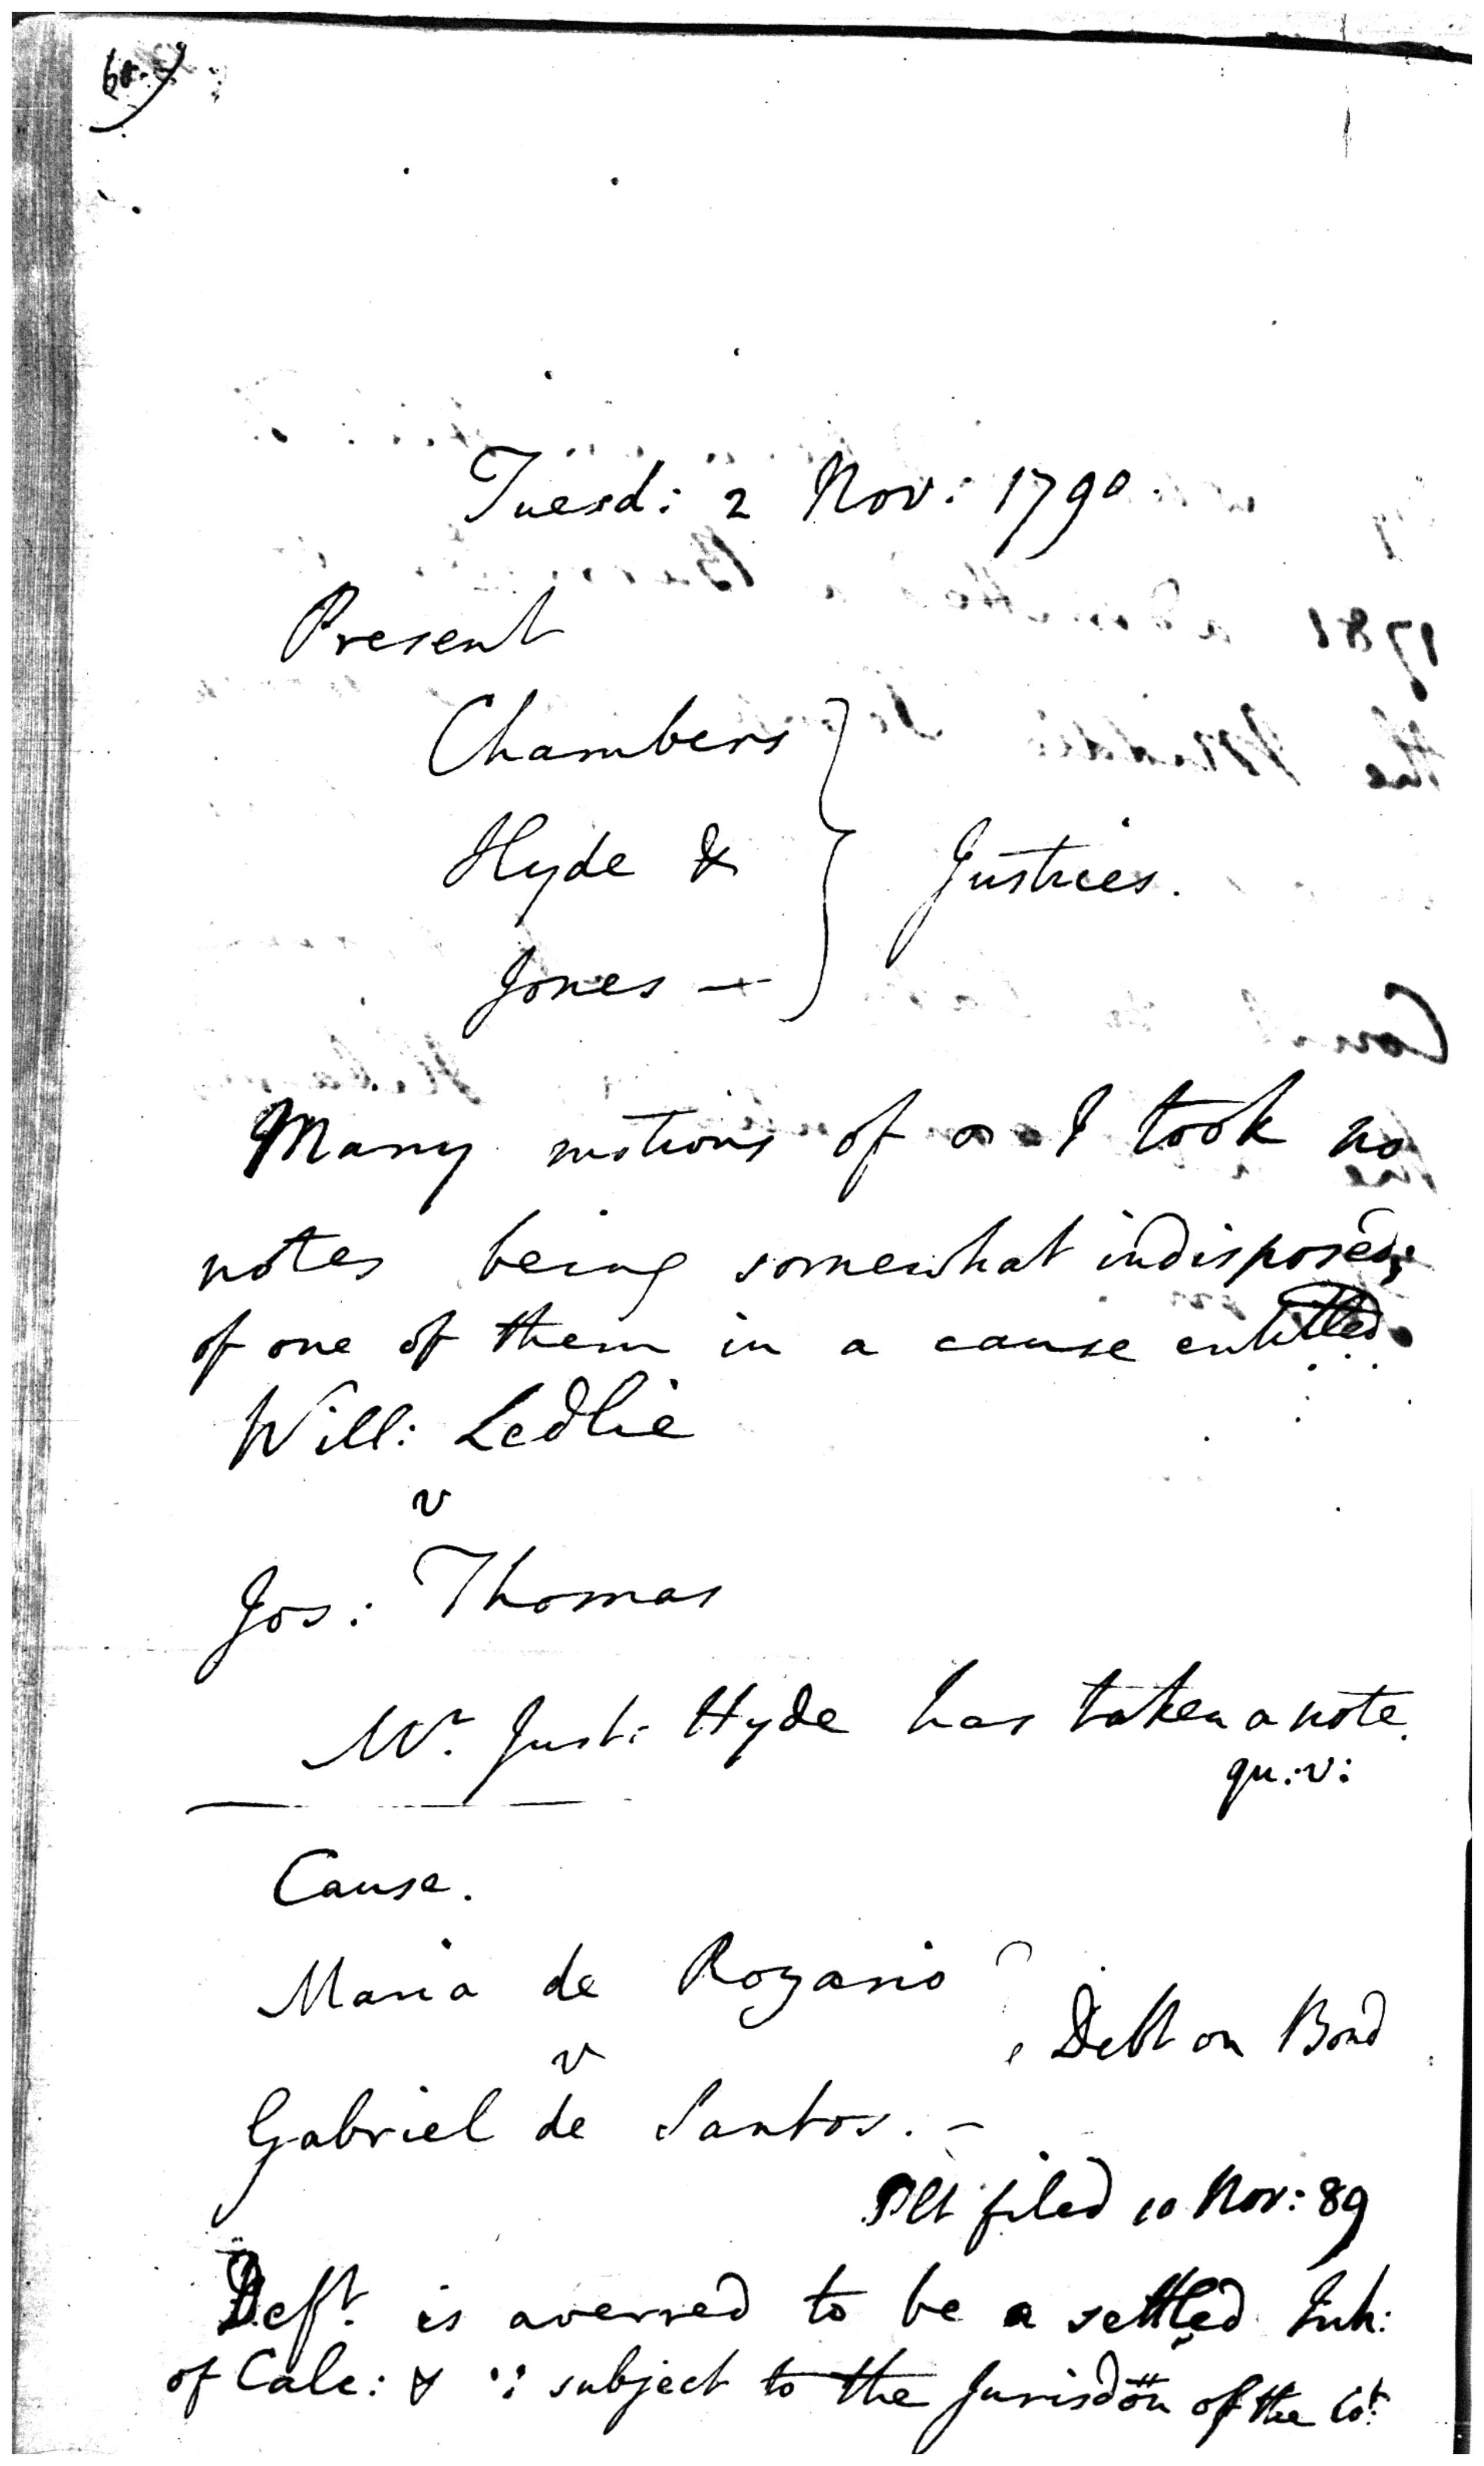 60.
Tuesd: 2 Nov: 1790.
Present
Chambers
Hyde & } Justices.
Jones —
Many motions of I took no
notes being somewhat indisposed;
of one of them in a cause entitled
Will: Ledlie
v
Jos: Thomas
Mr. Just: Hyde has taken a note.
qu: v:
Cause.
Maria de Rozario
v } Debt on Bond
Gabriel de Santos. -
Plt filed 10 Nov: 89
Deft. is averred to be a settled Inh:
of Calc: & ∵ subject to the Jurisdon of the Ct.